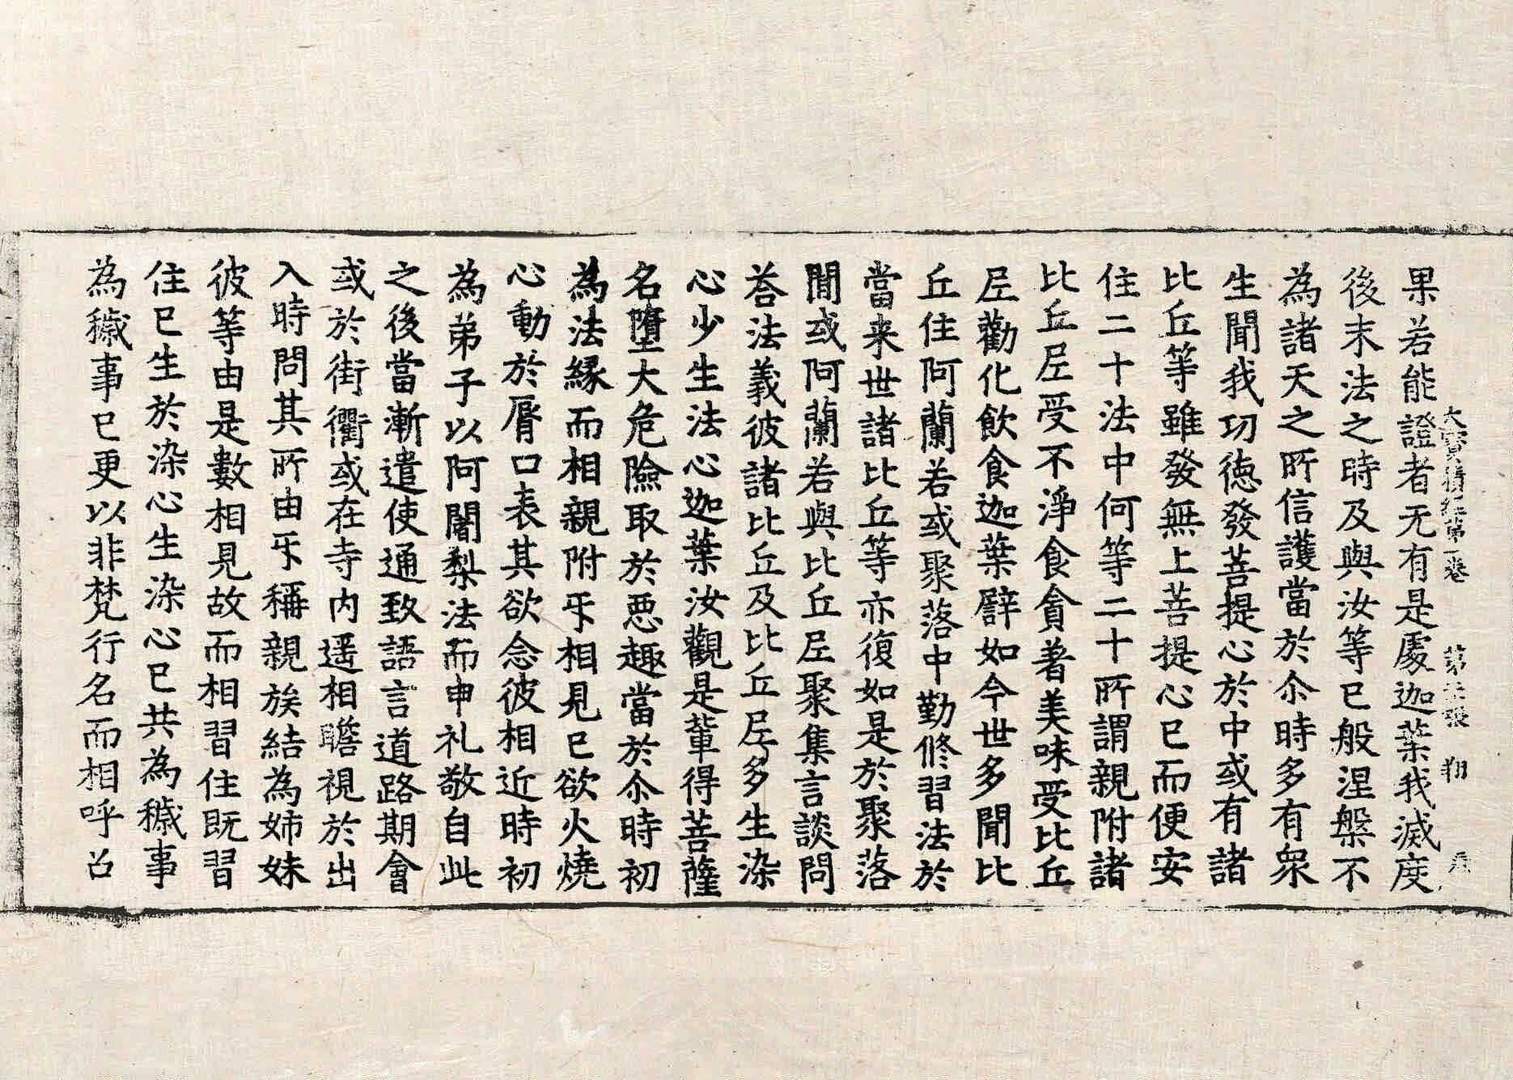 大寶積經第一卷 第 張 翔
果若能證者无有是處迦葉我滅度
後末法之時及與汝等已般涅槃不
為諸天之所信護當於尒時多有衆
生聞我功徳發菩提心於中或有諸
比丘等雖發無上菩提心已而便安
住二十法中何等二十所謂親附諸
比丘尼受不淨食貪著美味受比丘
尼勸化飲食迦葉譬如今世多聞比
丘住阿蘭若或聚落中勤修習法於
當来世諸比丘等亦復如是於聚落
閒或阿蘭若與比丘尼聚集言談問
荅法義彼諸比丘及比丘尼多生染
心少生法心迦葉汝觀是輩得菩薩
名墮大危險取於惡趣當於尒時初
為法縁而相親附㸦相見已欲火燒
心動於脣口表其欲念彼相近時初
為弟子以阿闍梨法而申礼敬自此
之後當漸遣使通致語言道路期會
或於街衢或在寺内遥相瞻視於出
入時問其所由㸦稱親族結為姉妹
彼等由是數相見故而相習住既習
住已生於染心生染心已共為穢事
為穢事已更以非梵行名而相呼召